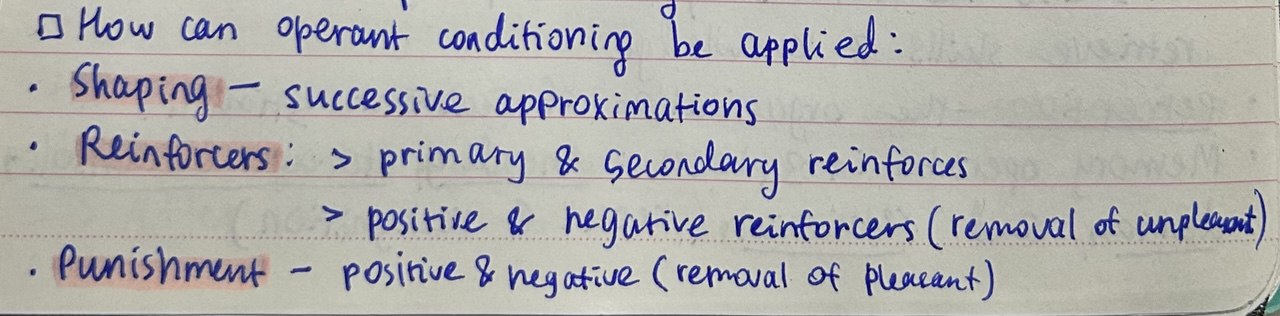 □ How can operant conditioning be applied:
· Shaping – successive approximations
· Reinforcers: > primary & secondary reinforces
> positive & negative reinforcers (removal of unpleasant)
· Punishment – positive & negative (removal of pleasant)